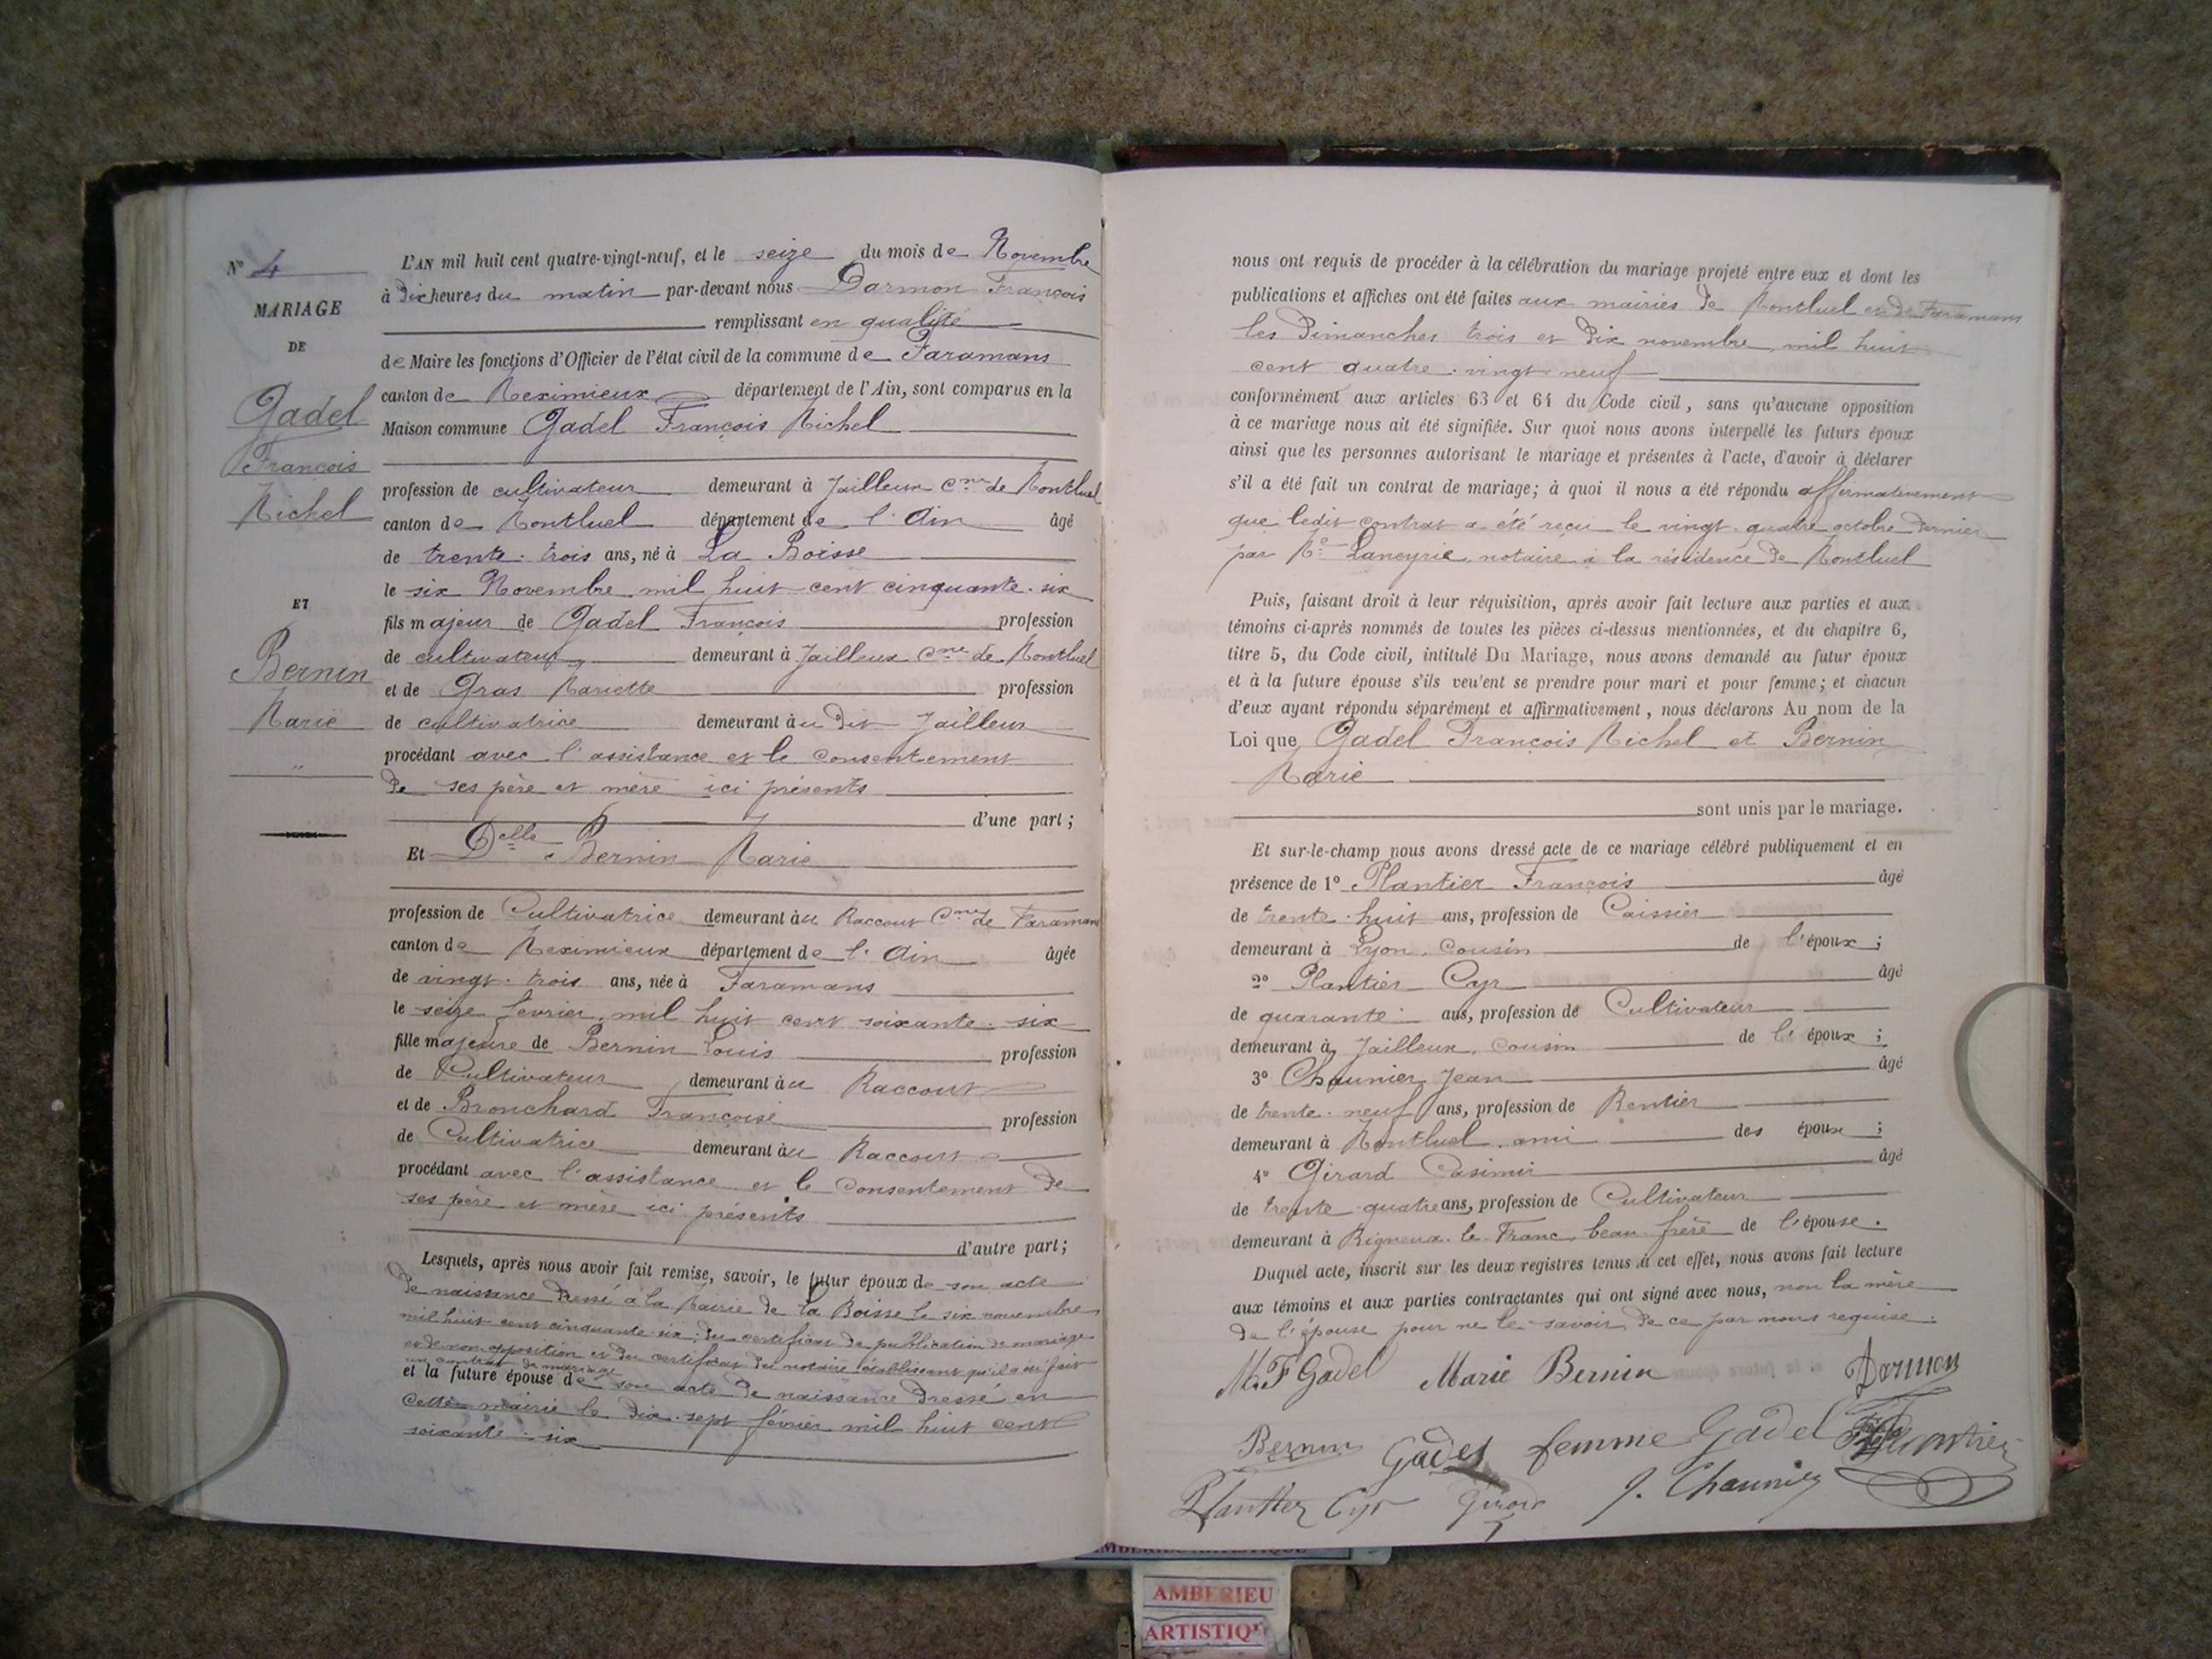 N° 4
MARIAGE
DE
Gadel
François
Michel
ET
Bernin
Marie
"
L'AN mil huit cent quatre-vingt-neuf, et le seize du mois de Novembre
à dix heures du matin par-devant nous Dormon François
remplissant en qualité
de Maire les fonctions d'Officier de l'état civil de la commune de Faramans
canton de Meximieux département de l'Ain, sont comparus en la
Maison commune Gadel François Michel
profession de cultivateur demeurant à Jailleux Cne de Montluel
canton de Montluel département de l'Ain âgé
de trente-trois ans, né à La Boisse
le six Novembre mil huit cent cinquante-six
fils majeur de Gadel François profession
de cultivateur demeurant à Jailleux Cne de Montluel
et de Gras Mariette profession
de cultivatrice demeurant au dit Jailleux
procédant avec l'assistance et le consentement
de ses père et mère ici présents
d'une part;
Et Delle Bernin Marie
profession de Cultivatrice demeurant au Raccourt Cne de Faramans
canton de Meximieux département de l'Ain âgée
de vingt-trois ans, née à Faramans
le seize février mil huit cent soixante-six
fille majeure de Bernin Louis profession
de Cultivateur demeurant au Raccourt
et de Bronchard Françoise profession
de Cultivatrice demeurant au Raccourt
procédant avec l'assistance et le consentement de
ses père et mère ici présents
d'autre part;
Lesquels, après nous avoir fait remise, savoir, le futur époux de son acte
de naissance dressé à la Mairie de La Boisse le six novembre
mil huit cent cinquante-six; du certificat de publication de mariage
et de non opposition et du certificat du notaire établissant qu'il a été fait
un contrat de mariage
et la future épouse de son acte de naissance dressé en
cette mairie le dix-sept février mil huit cent
soixante-six
nous ont requis de procéder à la célébration du mariage projeté entre eux et dont les
publications et affiches ont été faites aux mairies de Montluel et de Faramans
les Dimanches trois et dix novembre mil huit
cent quatre-vingt-neuf
conformément aux articles 63 et 64 du Code civil, sans qu'aucune opposition
à ce mariage nous ait été signifiée. Sur quoi nous avons interpellé les futurs époux
ainsi que les personnes autorisant le mariage et présentes à l'acte, d'avoir à déclarer
s'il a été fait un contrat de mariage; à quoi il nous a été répondu affirmativement
que ledit contrat a été reçu le vingt-quatre octobre dernier
par Me Laneyrie notaire à la résidence de Montluel
Puis, faisant droit à leur réquisition, après avoir fait lecture aux parties et aux
témoins ci-après nommés de toutes les pièces ci-dessus mentionnées, et du chapitre 6,
titre 5, du Code civil, intitulé Du Mariage, nous avons demandé au futur époux
et à la future épouse s'ils veulent se prendre pour mari et pour femme; et chacun
d'eux ayant répondu séparément et affirmativement, nous déclarons Au nom de la
Loi que Gadel François Michel et Bernin
Marie
sont unis par le mariage.
Et sur-le-champ nous avons dressé acte de ce mariage célébré publiquement et en
présence de 1° Plantier François âgé
de trente-huit ans, profession de Caissier
demeurant à Lyon, cousin de l'époux;
2° Plantier Cyr âgé
de quarante ans, profession de Cultivateur
demeurant à Jailleux, cousin de l'époux;
3° Chaunier Jean âgé
de trente-neuf ans, profession de Rentier
demeurant à Montluel, ami des époux;
4° Girard Casimir âgé
de trente-quatre ans, profession de Cultivateur
demeurant à Rigneux-le-Franc, beau-frère de l'épouse.
Duquel acte, inscrit sur les deux registres tenus à cet effet, nous avons fait lecture
aux témoins et aux parties contractantes qui ont signé avec nous, non la mère
de l'épouse pour ne le savoir de ce par nous requise.
M.F Gadel Marie Bernin Dormon
Bernin Gadel femme Gadel F Plantier
Plantier Cyr Girard J. Chaunier
AMBERIEU ARTISTIQUE
AMBERIEU
ARTISTIQ